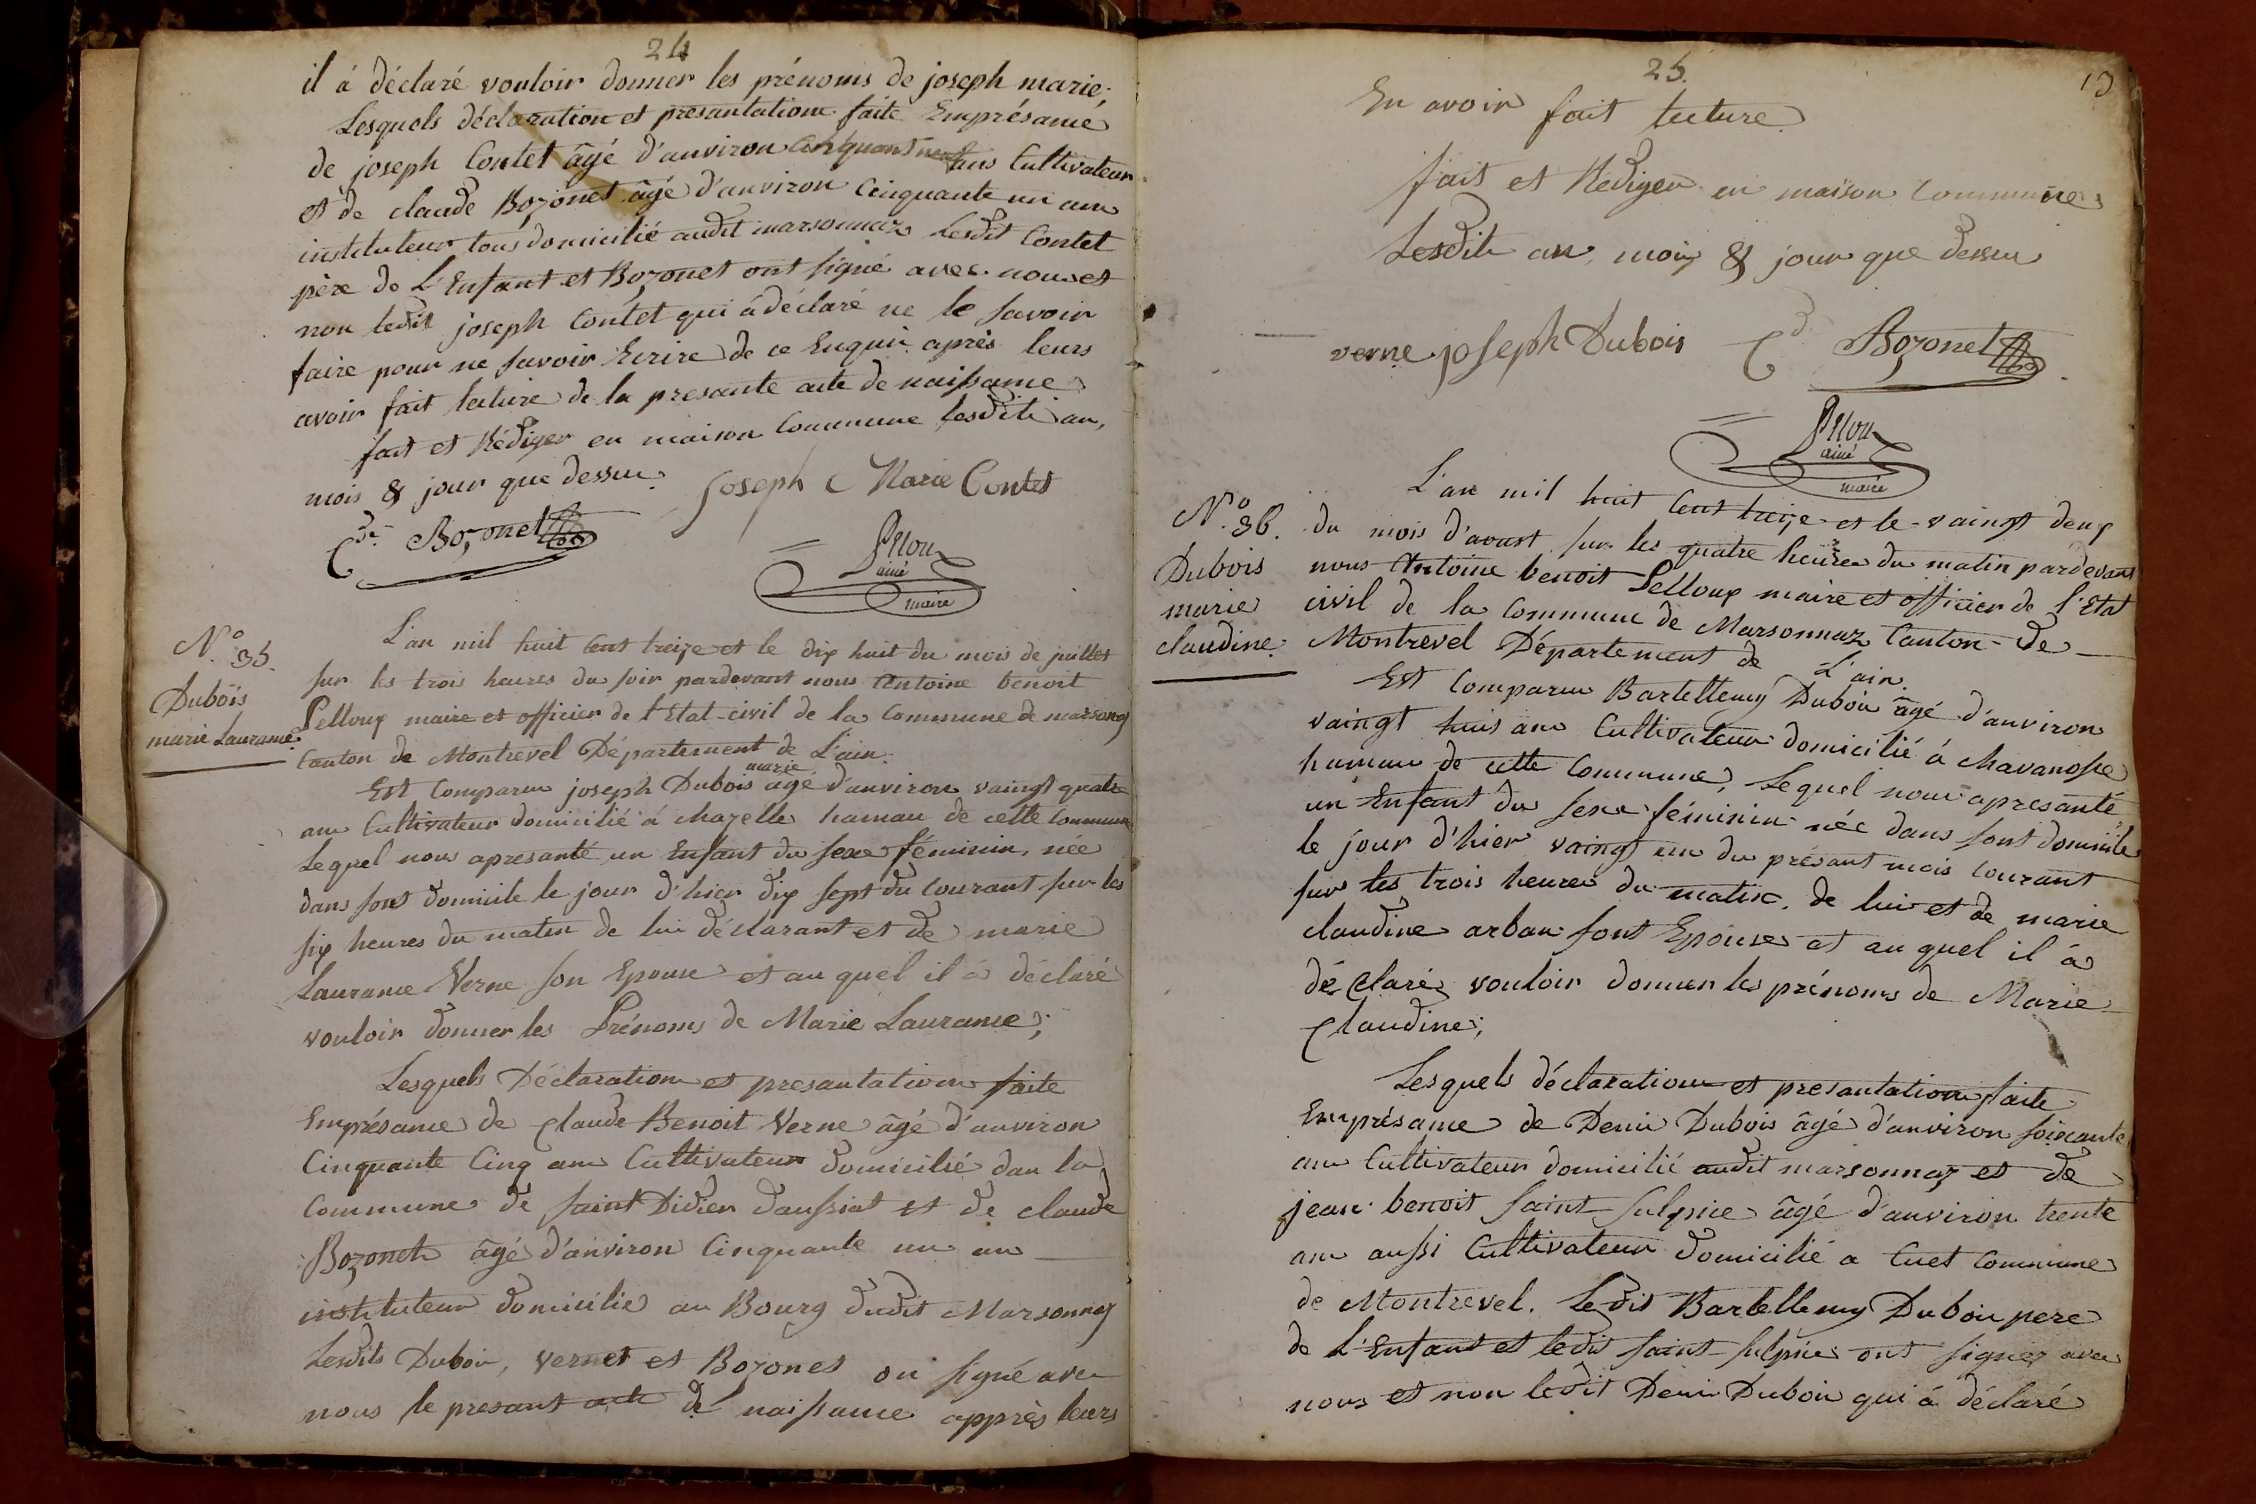 24
il á déclaré vouloir donner les prénoms de joseph marie;
Lesquels déclaration et presantatione faite Emprésance
de joseph Contet âgé d'anviron Cinquant neuf ans Cultivateur
et de claude Bozonet âgé d'anviron Cinquante un ans
instituteur tous domicilié audit marsonnaz Lesdit Contet
père de L'Enfant et Bozonet ont signé avec nous et
non ledit joseph Contet qui á déclaré ne le savoir
faire pour ne savoir Ecrire de ce Enquis après leurs
avoir fait lecture de la presante acte de naissance
fait et Rédiger en maison Commune lesdits an,
mois & jour que dessus.
Joseph Marie Contet
Cde Bozonet
Pelloux
ainé
maire
N.o 35.
Dubois
marie Laurance
L'an mil huit Cent treize et le dix huit du mois de juillet
sur les trois heures du soir pardevant nous Antoine benoit
Pelloux maire et officier de l'Etat-civil de la Commune de marsonaz
Canton de Montrevel Département de L'ain.
Est Comparu joseph marie Dubois âgé d'anviron vaingt quatre
ans Cultivateur domicilié á chazelle hamau de cette Commune
Lequel nous apresanté un Enfant du sexe féminin, née
dans sont domicile le jour d'hier dix sept du Courant sur les
six heures du matin de lui déclarant et de marie
Laurance Verne son Epouse et au quel il á déclaré
vouloir donner les Prénoms de Marie Laurance;
Lesquels Déclaration et presantation faite
Emprésance de Claude Benoit Verne âgé d'anviron
Cinquante Cinq ans Cultivateur domicilié dan la
Commune de saint Didier daussiat et de claude
Bozonet âgé d'anviron Cinquante un an
instituteur domicilié au Bourg dudit Marsonnaz
Lesdits Dubois, vernet et Bozonet on signé avec
nous le presant acte de naissance apprès leurs
25.
13
En avoir fait lecture
fait et Rediger en maison Commune
Lesdits an, mois & jour que dessus
verne joseph Dubois Cd Bozonet
Pelloux
ainé
maire
N.o 36.
Dubois
marie
claudine
L'an mil huit Cent treize et le vaingt deux
du mois d'avust sur les quatre heures du matin pardevant
nous Antoine benoit Pelloux maire et officier de l'Etat
civil de la Commune de Marsonnaz Canton de
Montrevel Département de L'ain.
Est Comparu Bartellemy Dubois âgé d'anviron
vaingt huis ans Cultivateur domicilié á chavanosse
hamau de cette Commune, Lequel nous apresanté
un Enfant du sexe féminin née dans sont domicile
le jour d'hier vaingt un du présant mois courant
sur les trois heures du matin. de lui et de marie
claudine arban sont Epouse et au quel il á
déclaré vouloir donner les prénoms de Marie
Claudine;
Lesquels déclaration et presantation faite
Emprésance de Denis Dubois âgé d'anviron soixante
ans Cultivateur domicilié audit marsonnaz et de
jean benoit saint sulpice âgé d'anviron trente
ans aussi Cultivateur domicilié a Cuet Commune
de Montrevel. Ledit Bartellemy Dubois pere
de L'Enfant et ledit saint sulpice ont signez avec
nous et non ledit Denis Dubois qui á déclaré